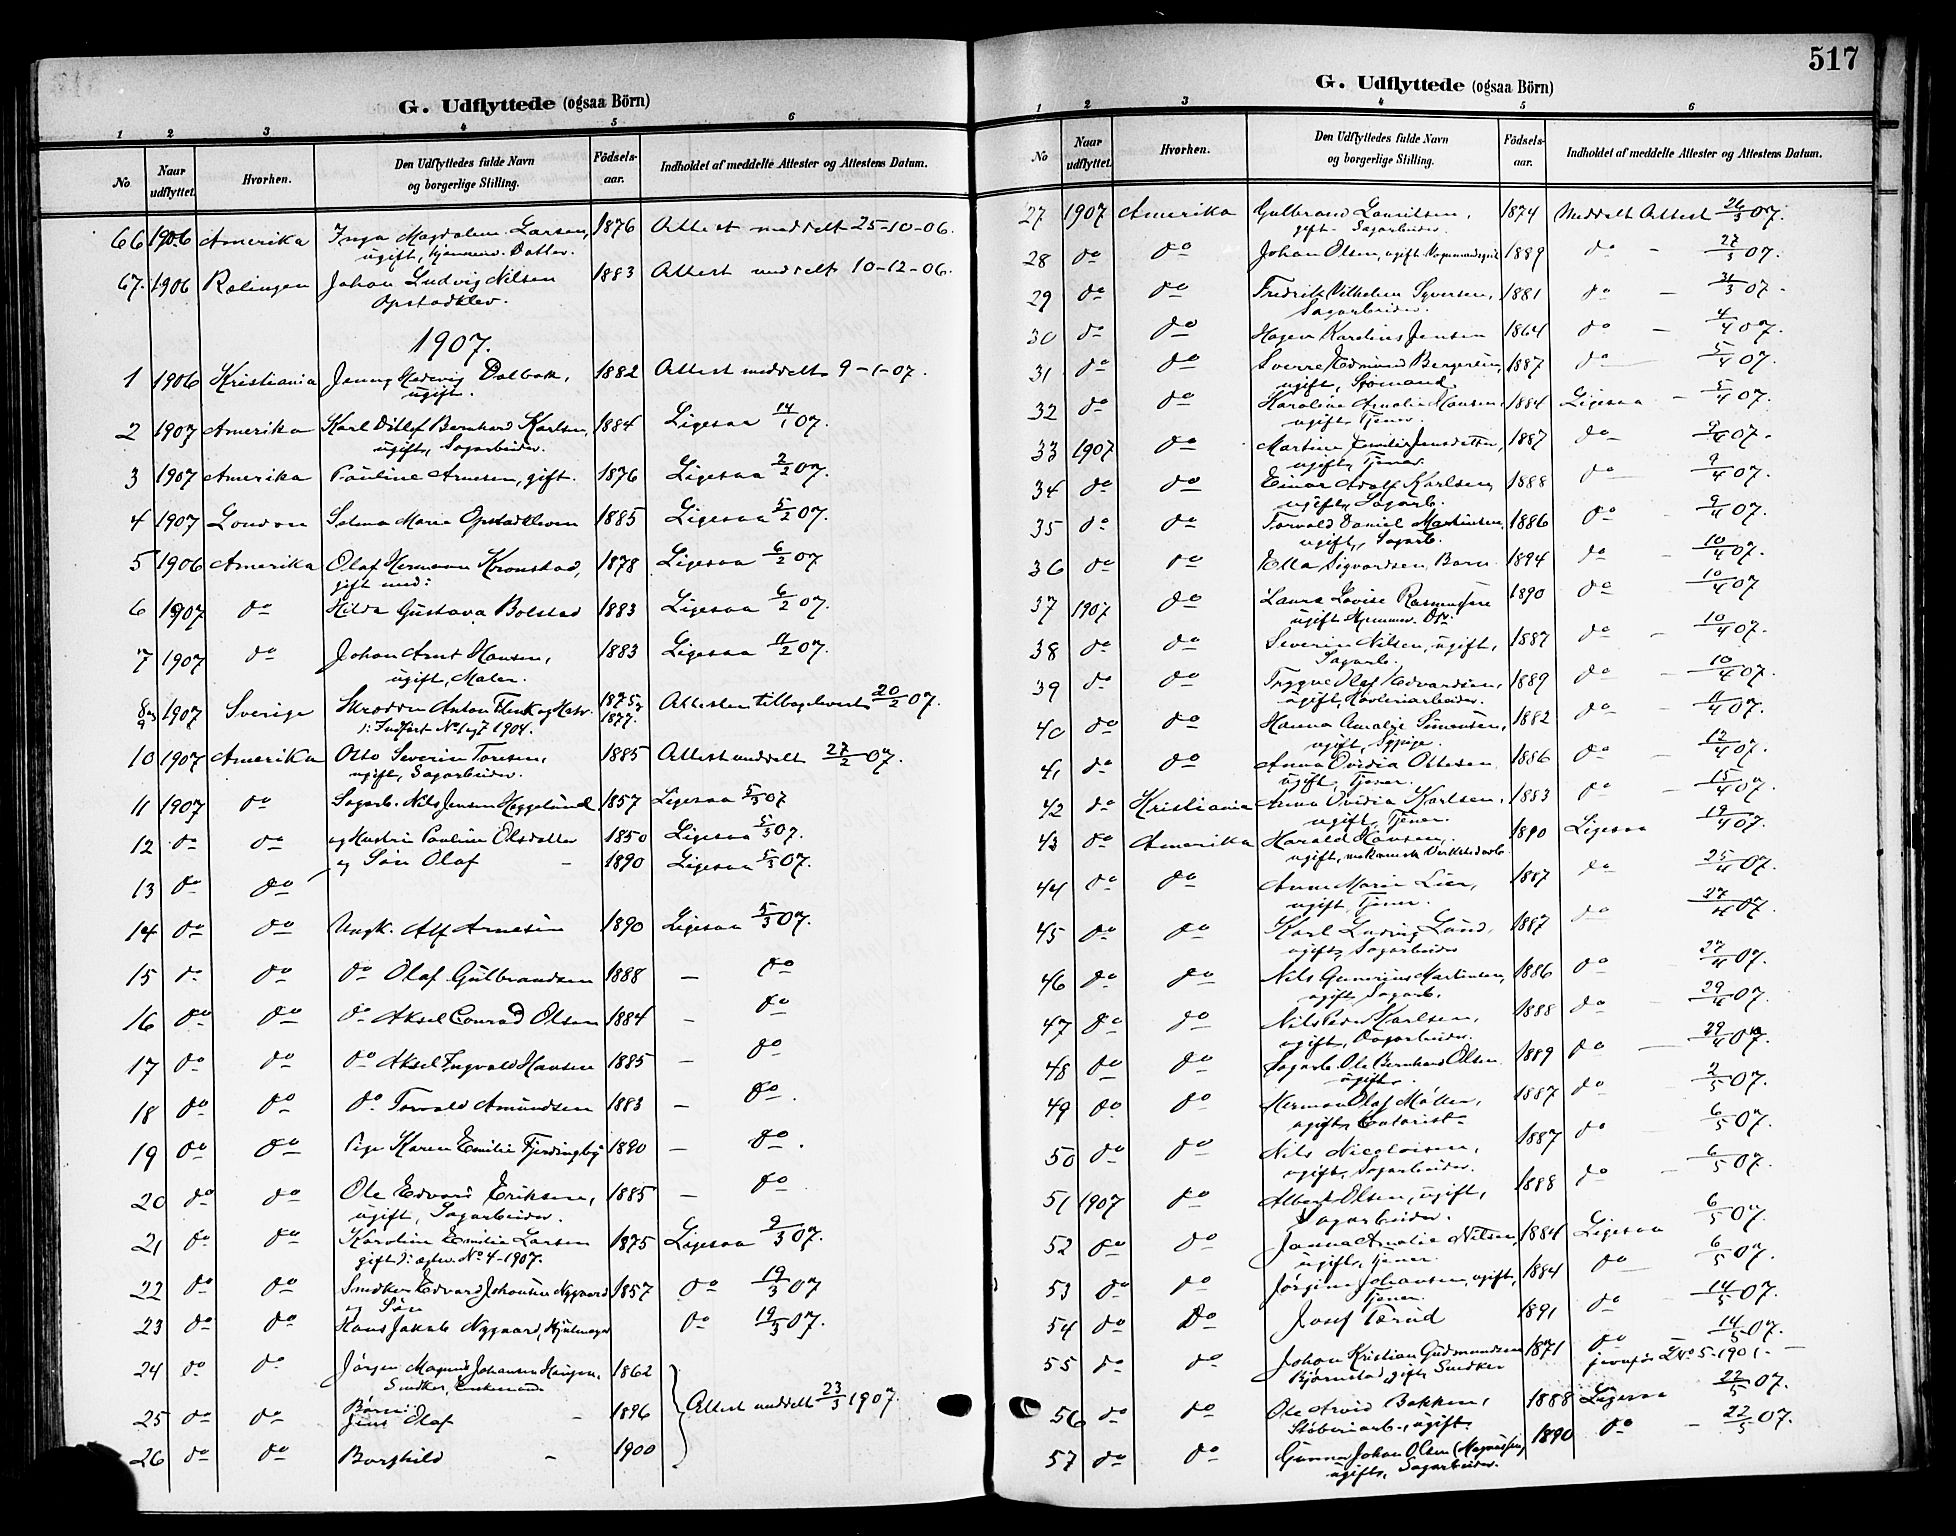 G. Udflyttede (ogsaa Börn)
1 2 3 4 5 6
No Naar udflyttet. Hvorhen. Den Udflyttedes fulde Navn og borgerlige Stilling. Födselsaar. Indholdet af meddelte Attester og Attestens Datum.
66 1906 Amerika Inga Magdalena Larsen, 1876 Attest meddelt 25-10-06.
ugift, hjemmev. Datter.
67. 1906 Rælingen Johan Ludvig Nilsen 1883 Attest meddelt 10-12-06.
Opstadklev.
1907.
1 1906 Kristiania Jenny Hedvig Dalbak, 1882 Attest meddelt 9-1-07.
ugift.
2 1907 Amerika Karl Ditlef Bernhard Karlsen, 1884 Ligesaa 14/1 07.
ugift, Sagarbeider.
3 1907 Amerika Pauline Arnesen, gift. 1876 Ligesaa 2/2 07.
4 1907 London Selma Marie Opstadkleven 1885 Ligesaa 5/2 07.
5 1906 Amerika Olaf Hermann Kronstad, 1878 Ligesaa 6/2 07
gift med:
6 1907 do Hilda Gustava Bolstad 1883 Ligesaa 6/2 07.
7 1907 do Johan Arnt Hansen, 1883 Ligesaa 11/2 07.
ugift, Maler.
8 og 9 1907 Sverige Skrædder Anton Flink og Hustr. 1875 & 1877. Attesten tilbageleveret 20/2 07.
Indført No 1 og 7 1904.
10 1907 Amerika Otto Severin Toresen, 1885 Attest meddelt 27/2 07.
ugift, Sagarbeider.
11 1907 do Sagarb. Nils Jensen Heggelund 1857 Ligesaa 5/3 07
12 do do og Hustru Pauline Olsdatter 1850 Ligesaa 5/3 07.
13 do do og Søn Olaf - 1890 Ligesaa 5/3 07.
14 do do Ungk. Alf Arnesen 1890 Ligesaa 5/3 07.
15 do do do Olaf Gulbrandsen 1888 - do
16 do do do Aksel Conrad Olsen 1884 - do
17 do do do Aksel Ingvald Hansen 1885 - do
18 do do do Torvald Amundsen 1883 - do.
19 do do Pige Karen Emilie Fjerdingby 1890 - do.
20 do do Ole Edvard Eriksen, 1885 - do
ugift, Sagarbeider.
21 do do Karoline Emilie Larsen 1875 Ligesaa 9/3 07.
gift No 4-1907.
22 do do Snedker Edvard Johansen Nygaard 1857 do 19/3 07
og Søn
23 do do Hans Jakob Nygaard, Hjulmager do 19/3 07.
24 do do Jørgen Magnus Johansen Haugen, 1862
Snedker, Enkemand
Børn:
25 do do Jens Olaf - 1896 Attest meddelt 23/3 1907.
26 do do Borghild - 1900
517
G. Udflyttede (ogsaa Börn)
1 2 3 4 5 6
No Naar udflyttet. Hvorhen. Den Udflyttedes fulde Navn og borgerlige Stilling. Födselsaar. Indholdet af meddelte Attester og Attestens Datum.
27 1907 Amerika Gulbrand Lauritsen, 1874 Meddelt Attest 26/3 07.
gift Sagarbeider.
28 do do Johan Olsen, ugift 1889 do - 27/3 07.
29 do do Fredrik Vilhelm Syversen, 1881 do - 07.
Sagarbeider.
30 do do Hagen Karelius Jensen 1864 do - 4/4 07.
31 do do Sverre Edmund Bergersen, 1887 do 5/4 07.
ugift, Sømand
32 do do Karoline Amalie Hansen, 1884 Ligesaa - 5/4 07.
ugift Tjener.
33 1907 do Martine Emilie Jensdatter, 1887 do 07.
ugift, Tjener.
34 do do Einar Adolf Karlsen, 1888 do 9/4 07.
ugift, Sagarb.
35 do do Torvald Daniel Martinsen, 1886 do - 9/4 07.
ugift, Sagarb.
36 do do Ella Sigvardsen, Barn 1894 do - 10/4 07.
37 1907 do Laura Lovise Rasmussen 1890 do 10/4 07
ugift Hjemmev. Dtr.
38 do do Severin Nilsen, ugift, 1887 do - 10/4 07.
Sagarb.
39 do do Trygve Olaf Edvardsen, 1889 do - 10/4 07.
ugift, Høvleriarbeider.
40 do do Hanna Amalie Simensen, 1882 do - 11/4 07.
ugift, Sypige.
41 do do Anna Ovidia Ottesen 1886 do - 12/4 07.
ugift, Tjener.
42 do Kristiania Anna Ovidia Karlsen, 1883 do - 15/4 07.
ugift, Tjener.
43 do Amerika Harald Hansen, 1890 Ligesaa 19/4 07.
ugift, mekanisk Verkstedarb.
44 do do Anna Marie Lier, 1887 do 25/4 07.
ugift, Tjener.
45 do do Karl Ludvig Lund, 1887 do 27/4 07.
ugift, Sagarbeider
46 do do Nils Martinsen, 1886 do - 27/4 07.
ugift, Sagarb.
47 do do Nils Peder Karlsen, 1888 do - 29/4 07.
ugift, Sagarbeider.
48 do do Sagarb. Ole Bernhard Olsen 1889 do 29/4 07.
ugift.
49 do do Herman Olaf Møller, 1887 do - 2/5 07.
ugift, Contorist-
50 do do Nils Nicolaisen, 1887 do 6/5 07.
ugift, Sagarbeider.
51 1907 do Albert Olsen, ugift, 1888 do - 6/5 07.
Sagarbeider.
52 do do Janna Amalie Nilsen, 1884 Ligesaa 6/5 07.
ugift, tjener.
53 do do Jørgine Johansen, ugift, 1884 do 6/5 07.
Tjener.
54 do do Josef Tærud 1891 do - 14/5 07.
55 do do Johan Kristian Gudmundsen 1871 do 14/5 07.
Bjørnstad, gift, Snedker jevnfør No 5-1901. -
56 do do Ole Arvid Bakken, 1888 Ligesaa 22/5 07.
Støberiarb., ugift.
57 do do Gunnar Johan Olsen (Magnussen) 1890 do - 22/5 07.
ugift, Sagarbeider.